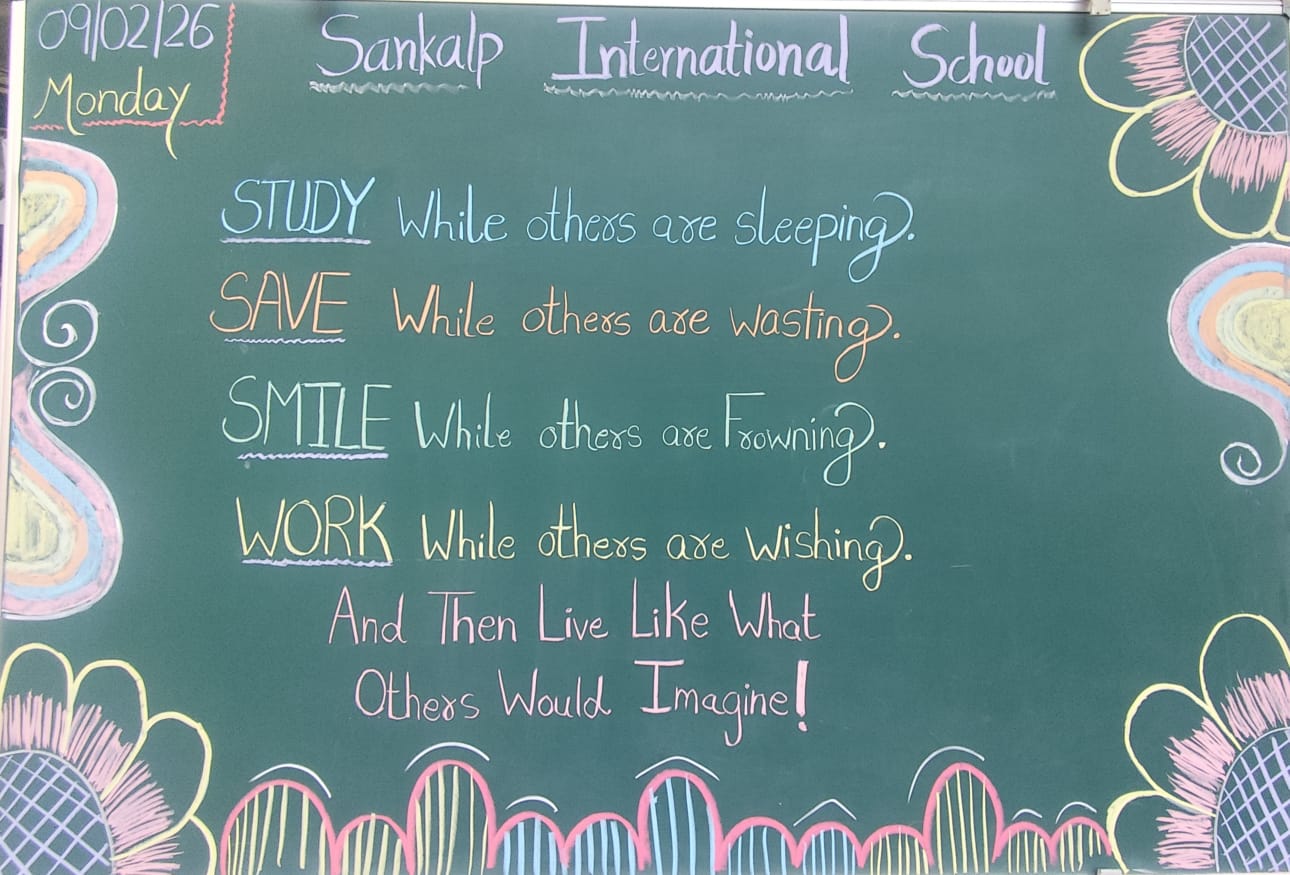 09/02/26
Monday
Sankalp International School
STUDY While others are sleeping.
SAVE While others are wasting.
SMILE While others are Frowning.
WORK While others are wishing.
And Then Live Like What
Others Would Imagine!